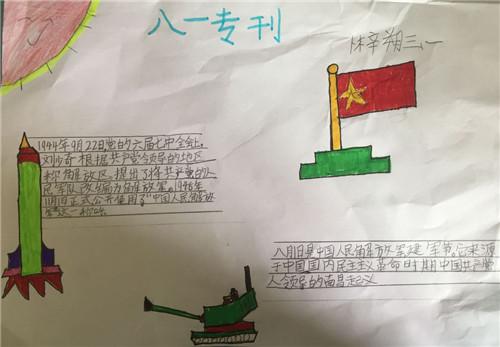 八一专刊
林辛朔三、一
1944年9月22日党的六届七中全会上。
刘少奇根据共产党领导的地区
称解放区,提出了将共产党的人
民军队改编为解放军。1946年
11月1日正式公开使用了“中国人民解放
军这一称呼
八月1日是中国人民解放军建军节。它来源
于中国国内民主主义革命时期中国共产党
人领导的南昌起义